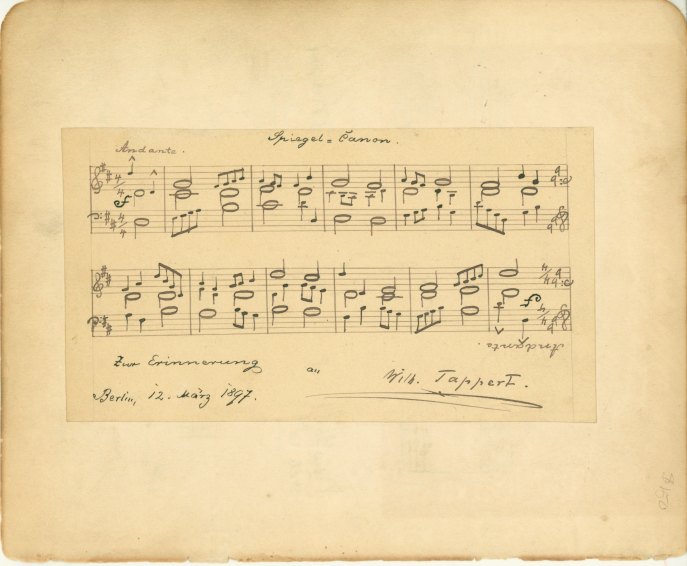 Spiegel = Canon.
Andante.
4/4
4/4
f
4/4
f
4/4
Andante.
Zur Erinnerung an Wilh. Tappert.
Berlin, 12. März 1897.